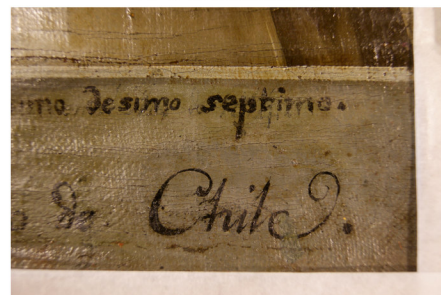 Desimo septimo.
de Chile.